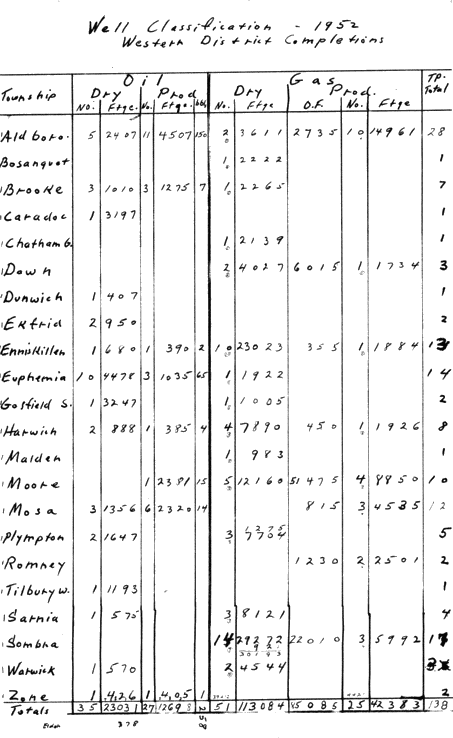 Well Classification - 1952
Western District Completions
Oil Gas
Township Dry Prod Dry Prod. TP. Total
No. Ftge. No. Ftge. bbl No. Ftge O.F. No. Ftge
Aldboro. 5 2407 11 4507 150 2 3611 2735 10 14961 28
Bosanquet 1 2222 1
Brooke 3 1010 3 1275 7 1 2265 7
Caradoc 1 3197 1
Chatham G. 1 2139 1
Dawn 2 4027 6015 1 1734 3
Dunwich 1 407 1
Ekfrid 2 950 2
Enniskillen 1 680 1 390 2 10 23023 355 1 1884 13
Euphemia 10 4478 3 1035 65 1 1922 14
Gosfield S. 1 3247 1 1005 2
Harwich 2 888 1 385 4 4 7890 450 1 1926 8
Malden 1 983 1
Moore 1 2381 15 5 12160 51475 4 8850 10
Mosa 3 1356 6 2320 14 815 3 4535 12
Plympton 2 1647 3 7704 5
Romney 1230 2 2501 2
Tilbury W. 1 1193 1
Sarnia 1 575 3 8121 4
Sombra 14 29272 22010 3 5992 17
Warwick 1 570 2 4544
Zone 1 426 1 405 1 2
Totals 35 23031 27 12698 51 113084 85085 25 42383 138
378